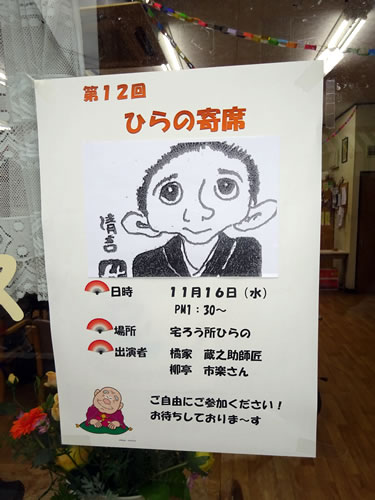 第１２回
ひらの寄席
清吉
日時 １１月１６日（水）
PM１：３０～
場所 宅ろう所ひらの
出演者 橘家 蔵之助師匠
柳亭 市楽さん
ご自由にご参加ください！
お待ちしておりま～す